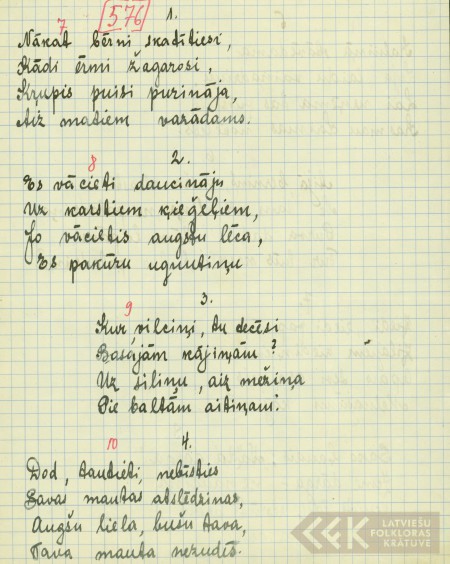 7 576 1.
Nākat bērni skatīties,
Kādi ērmi žagarosi,
Krupis puisi purināja,
Aiz matiem varādams.
8 2.
Es vācieti daucināju
Uz karstiem ķieģeļiem,
Jo vācietis augstu lēca,
Es pakūru uguntiņu
9 3.
Kur, vilciņi, tu tecēsi
Basajām kājiņām?
Uz siliņu, aiz mežiņa
Pie baltām aitiņam.
10 4.
Dod, tautieti, nebīsties
Savas mantas atslēdziņas,
Augšu liela, bušu tava,
Tava manta nezudīs.
LATVIEŠU
FOLKLORAS
KRĀTUVE